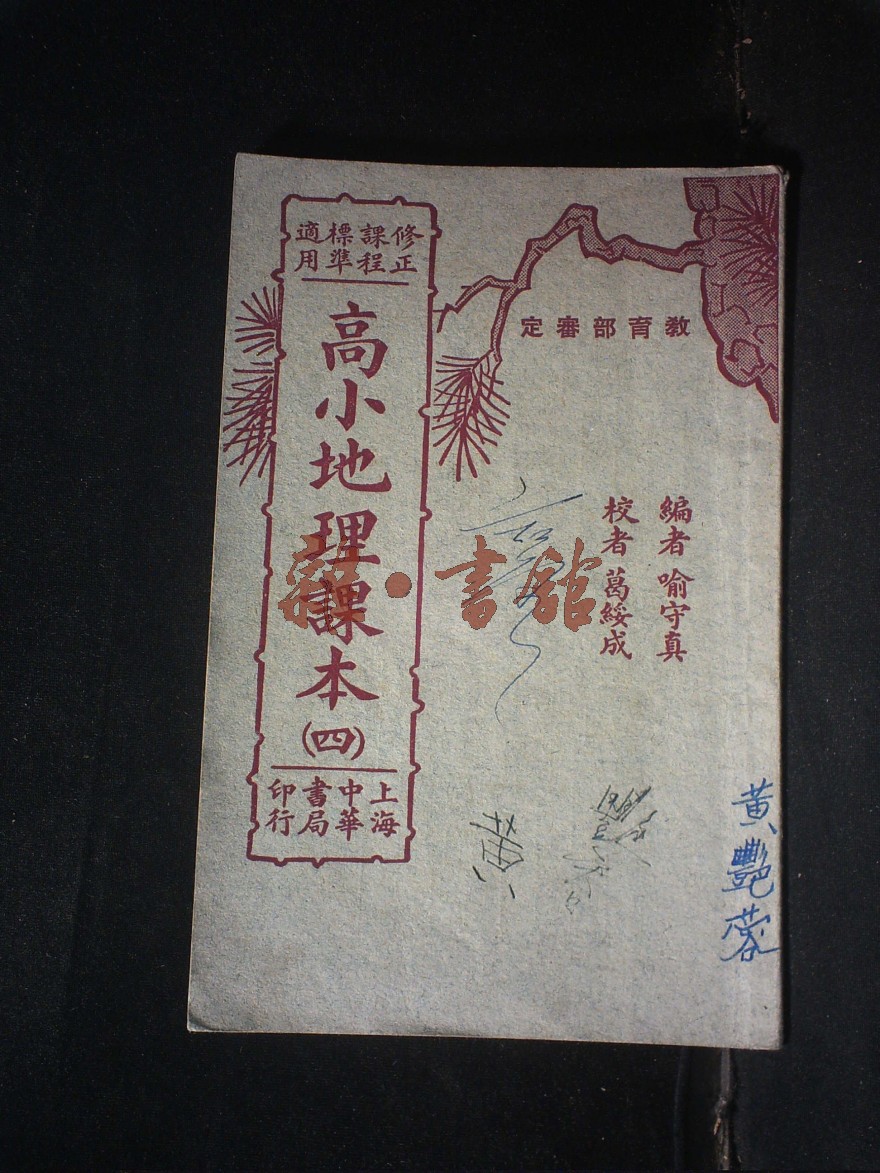 教育部審定
編者 喻守真
校者 葛綏成
修正課程標準適用
高小地理課本(四)
上海中華書局印行
黄艷蓉
書舘